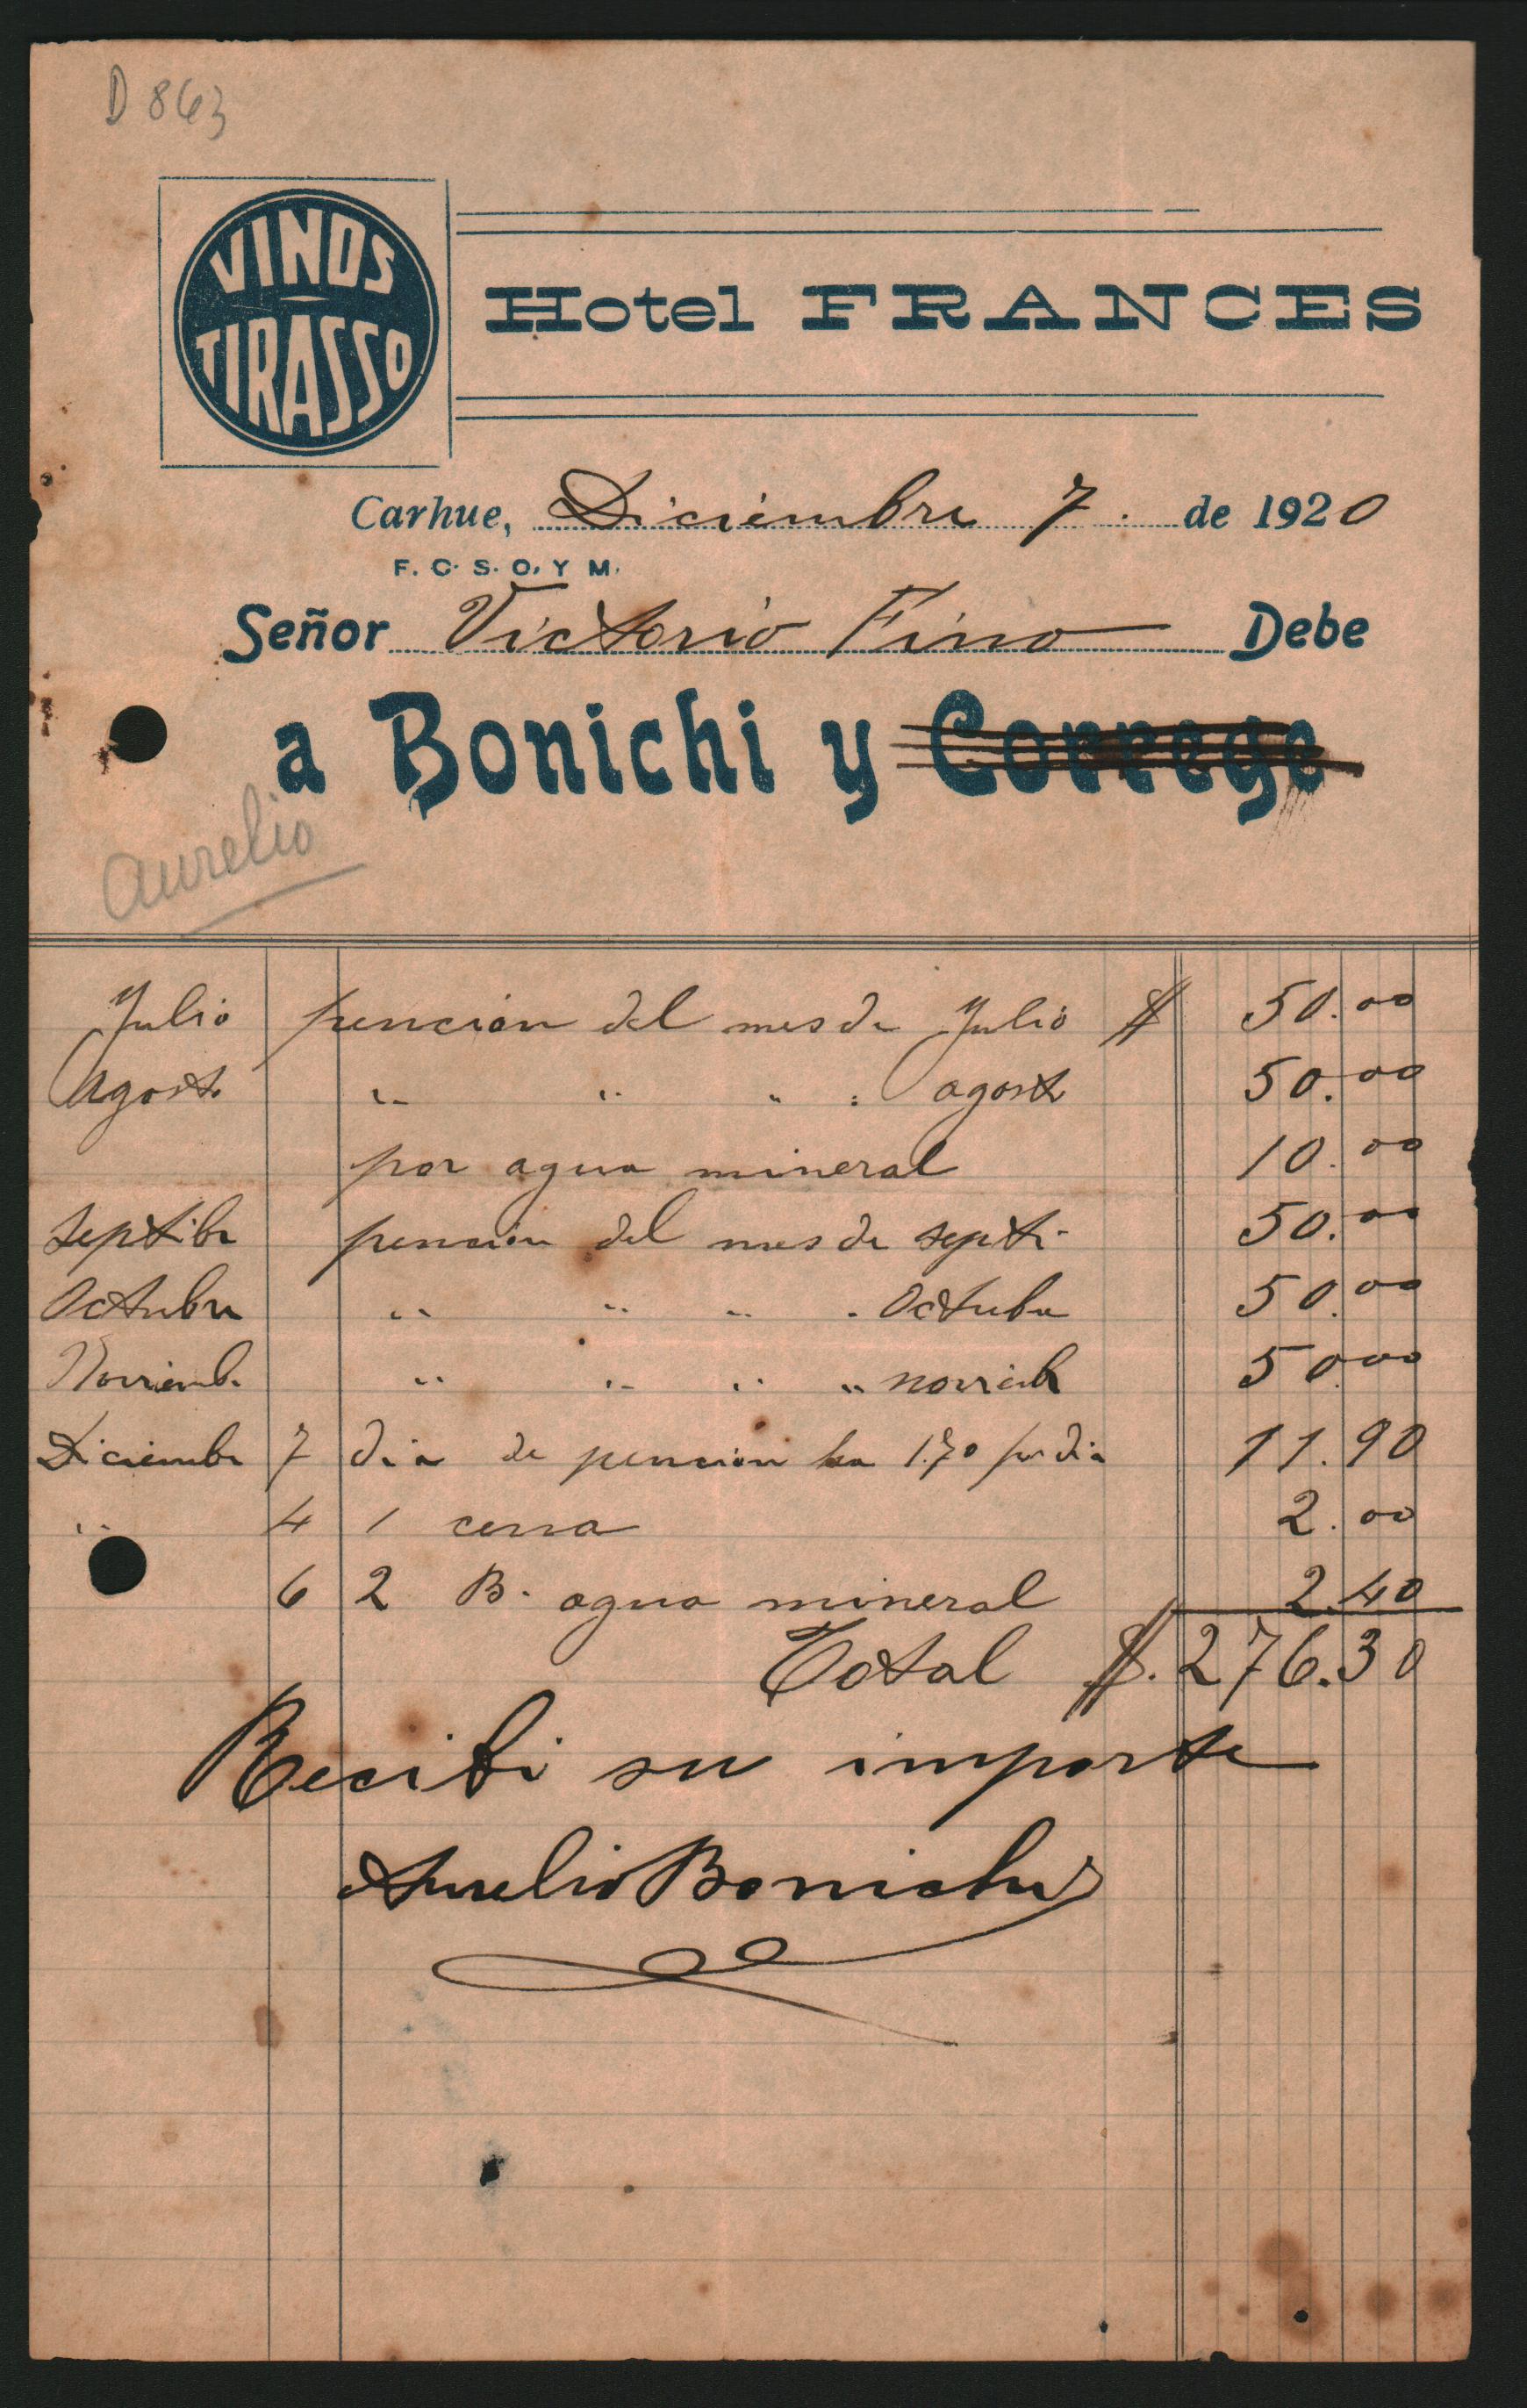 D 863
VINOS
TIRASSO
Hotel FRANCES
Carhue, Diciembre 7. de 1920
F. C. S. O. Y M.
Señor Victorio Fino Debe
a Bonichi y Correge
Aurelio
Julio pencion del mes de Julio $ 50.00
Agosto " " " " agosto 50.00
por agua mineral 10.00
Septibr pension del mes de septi- 50.00
Octubre " " " " Octubre 50.00
Noviemb. " " " " noviemb 50.00
Diciembre 7 dia de pencion ha 1.70 por dia 11.90
" 4 1 cena 2.00
6 2 B. agua mineral 2.40
Total $. 276.30
Recibi su importe
Aurelio Bonichi